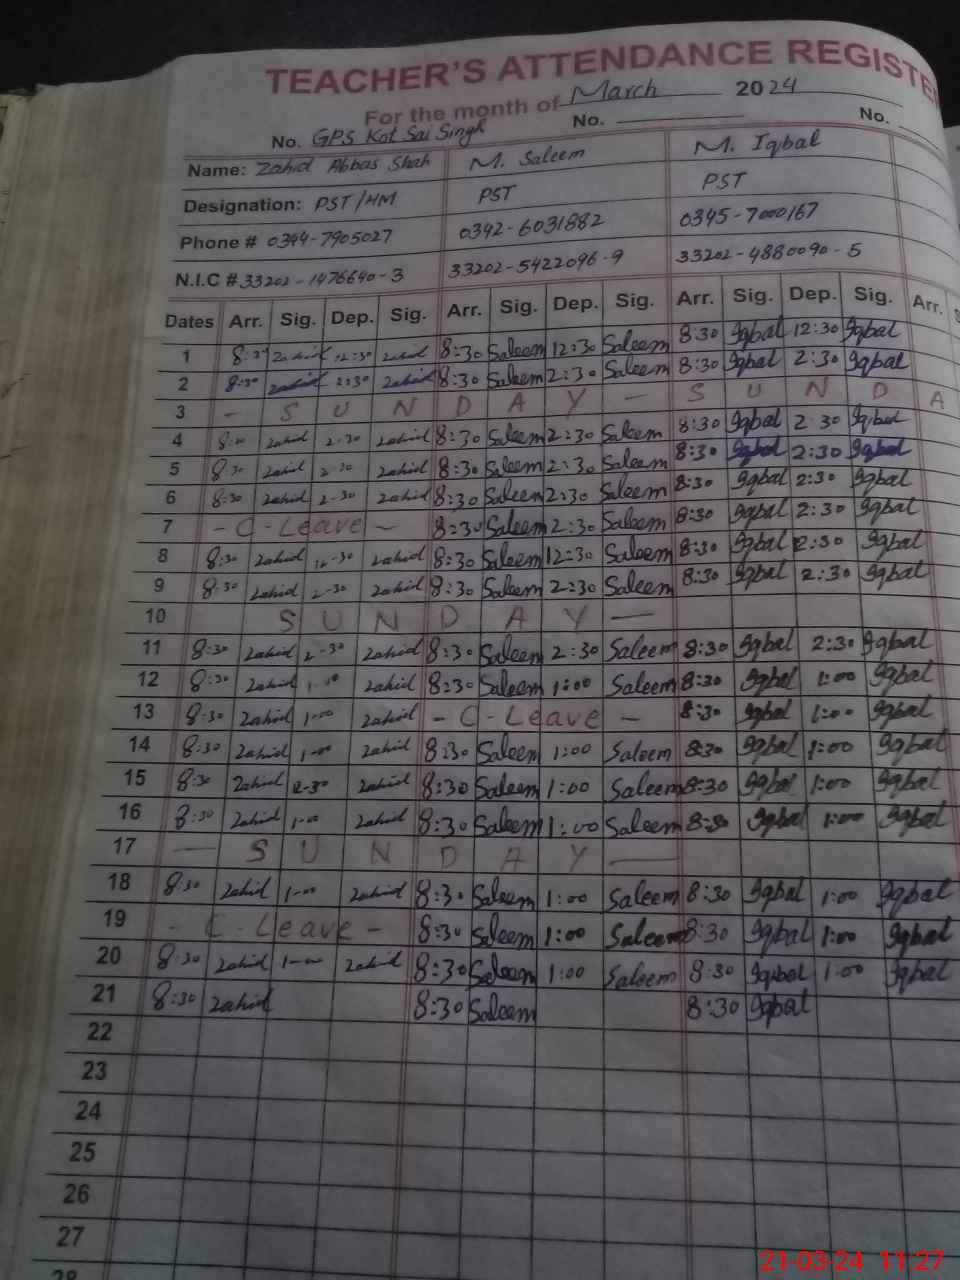 TEACHER'S ATTENDANCE REGISTE
For the month of March 2024
No. GPS Kot Sai Singh No. No.
Name: Zahid Abbas Shah M. Saleem M. Iqbal
Designation: PST/HM PST PST
Phone # 0344-7905027 0342-6031882 0345-7000167
N.I.C # 33202-1476640-3 33202-5422096-9 33202-4880090-5
Dates Arr. Sig. Dep. Sig. Arr. Sig. Dep. Sig. Arr. Sig. Dep. Sig. Arr. S
1 8:30 Zahid 12:30 Zahid 8:30 Saleem 12:30 Saleem 8:30 Iqbal 12:30 Iqbal
2 8:30 Zahid 2:30 Zahid 8:30 Saleem 2:30 Saleem 8:30 Iqbal 2:30 Iqbal
3 - S U N D A Y - S U N D A
4 8:30 Zahid 2-30 Zahid 8:30 Saleem 2:30 Saleem 8:30 Iqbal 2:30 Iqbal
5 8:30 Zahid 2-30 Zahid 8:30 Saleem 2:30 Saleem 8:30 Iqbal 2:30 Iqbal
6 8:30 Zahid 2-30 Zahid 8:30 Saleem 2:30 Saleem 8:30 Iqbal 2:30 Iqbal
7 - C-Leave - 8:30 Saleem 2:30 Saleem 8:30 Iqbal 2:30 Iqbal
8 8:30 Zahid 12-30 Zahid 8:30 Saleem 12:30 Saleem 8:30 Iqbal 12:30 Iqbal
9 8:30 Zahid 2-30 Zahid 8:30 Saleem 2:30 Saleem 8:30 Iqbal 2:30 Iqbal
10 S U N D A Y -
11 8:30 Zahid 2-30 Zahid 8:30 Saleem 2:30 Saleem 8:30 Iqbal 2:30 Iqbal
12 8:30 Zahid 1-00 Zahid 8:30 Saleem 1:00 Saleem 8:30 Iqbal 1:00 Iqbal
13 8:30 Zahid 1-00 Zahid - C-Leave - 8:30 Iqbal 1:00 Iqbal
14 8:30 Zahid 1-00 Zahid 8:30 Saleem 1:00 Saleem 8:30 Iqbal 1:00 Iqbal
15 8:30 Zahid 12-30 Zahid 8:30 Saleem 1:00 Saleem 8:30 Iqbal 1:00 Iqbal
16 8:30 Zahid 1-00 Zahid 8:30 Saleem 1:00 Saleem 8:30 Iqbal 1:00 Iqbal
17 - S U N D A Y -
18 8:30 Zahid 1-00 Zahid 8:30 Saleem 1:00 Saleem 8:30 Iqbal 1:00 Iqbal
19 - C-Leave - 8:30 Saleem 1:00 Saleem 8:30 Iqbal 1:00 Iqbal
20 8:30 Zahid 1-00 Zahid 8:30 Saleem 1:00 Saleem 8:30 Iqbal 1:00 Iqbal
21 8:30 Zahid 8:30 Saleem 8:30 Iqbal
22
23
24
25
26
27
28
21-03-24 11:27